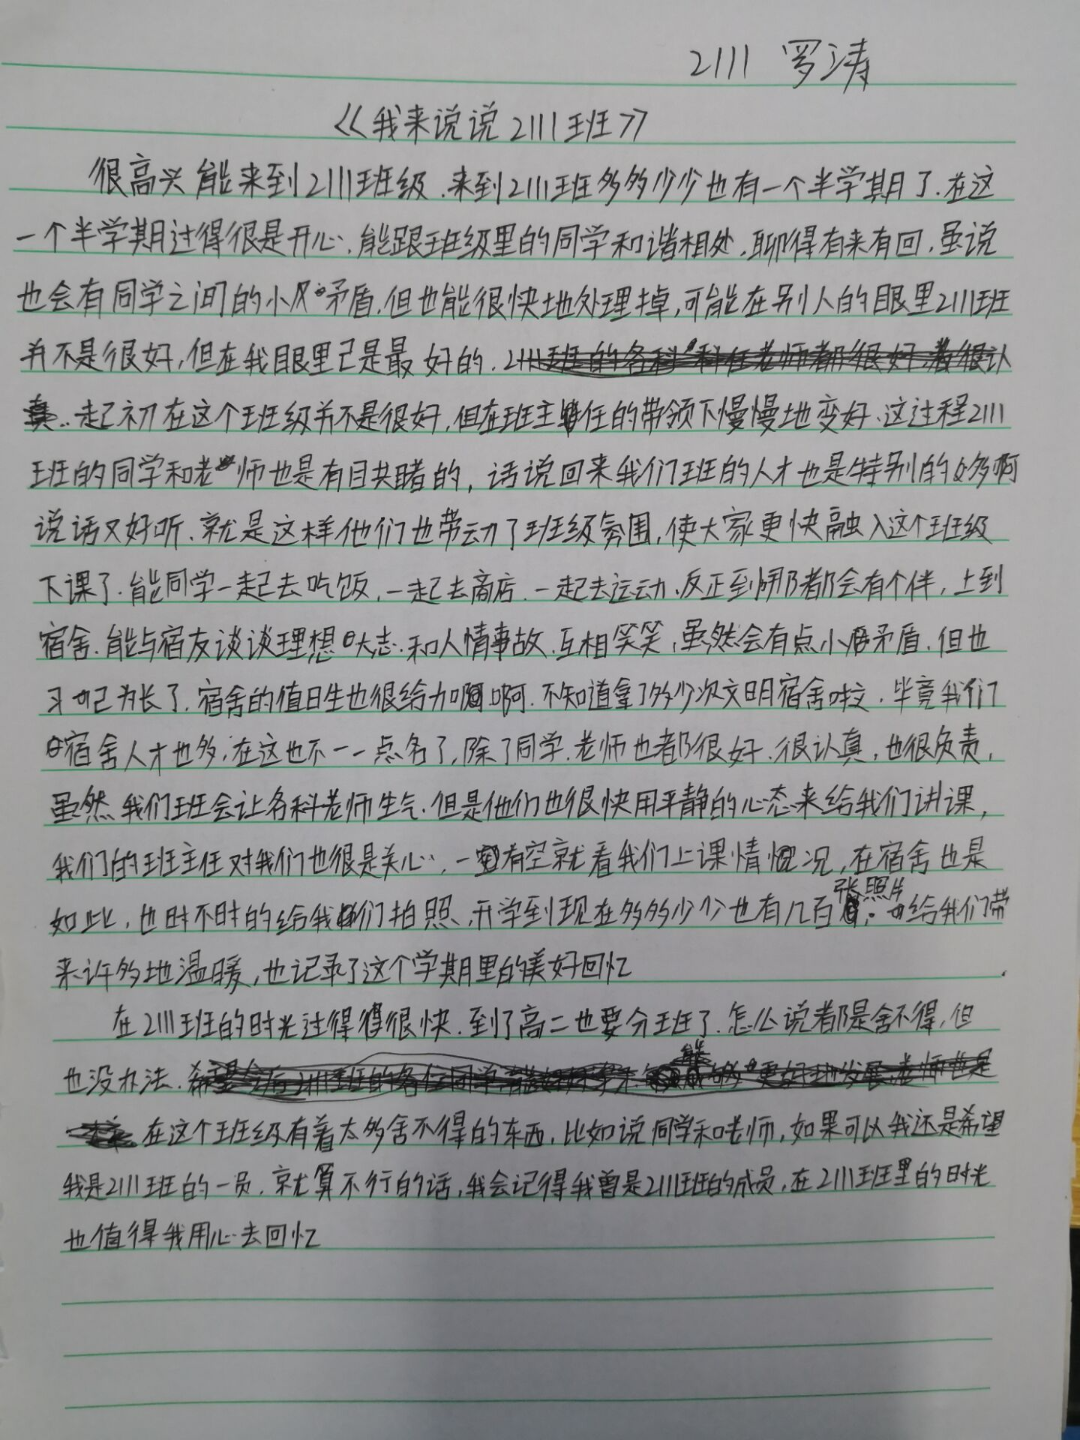 2111 罗涛
《我来说说2111班》
很高兴能来到2111班级.来到2111班多多少少也有一个半学期了.在这
一个半学期过得很是开心.能跟班级里的同学和谐相处.聊得有来有回.虽说
也会有同学之间的小矛盾.但也能很快地处理掉,可能在别人的眼里2111班
并不是很好,但在我眼里已是最好的.
起初在这个班级并不是很好,但在班主任的带领下慢慢地变好.这过程2111
班的同学和老师也是有目共睹的,话说回来我们班的人才也是特别的多啊
说话又好听.就是这样他们也带动了班级氛围,使大家更快融入这个班级
下课了.能同学一起去吃饭,一起去商店.一起去运动.反正到哪都会有个伴,上到
宿舍.能与宿友谈谈理想大志.和人情事故.互相笑笑,虽然会有点小矛盾.但也
习以为长了.宿舍的值日生也很给力啊.不知道拿了多少次文明宿舍啦.毕竟我们
宿舍人才也多.在这也不一一点名了,除了同学.老师也都很好.很认真,也很负责,
虽然我们班会让各科老师生气.但是他们也很快用平静的心态来给我们讲课,
我们的班主任对我们也很是关心.一有空就看我们上课情况,在宿舍也是
如此,也时不时的给我们拍照.开学到现在多多少少也有几百张照片.给我们带
来许多地温暖,也记录了这个学期里的美好回忆
在2111班的时光过得很快.到了高二也要分班了.怎么说都是舍不得,但
也没办法.
在这个班级有着太多舍不得的东西,比如说同学和老师,如果可以我还是希望
我是2111班的一员.就算不行的话,我会记得我曾是2111班的成员,在2111班里的时光
也值得我用心去回忆